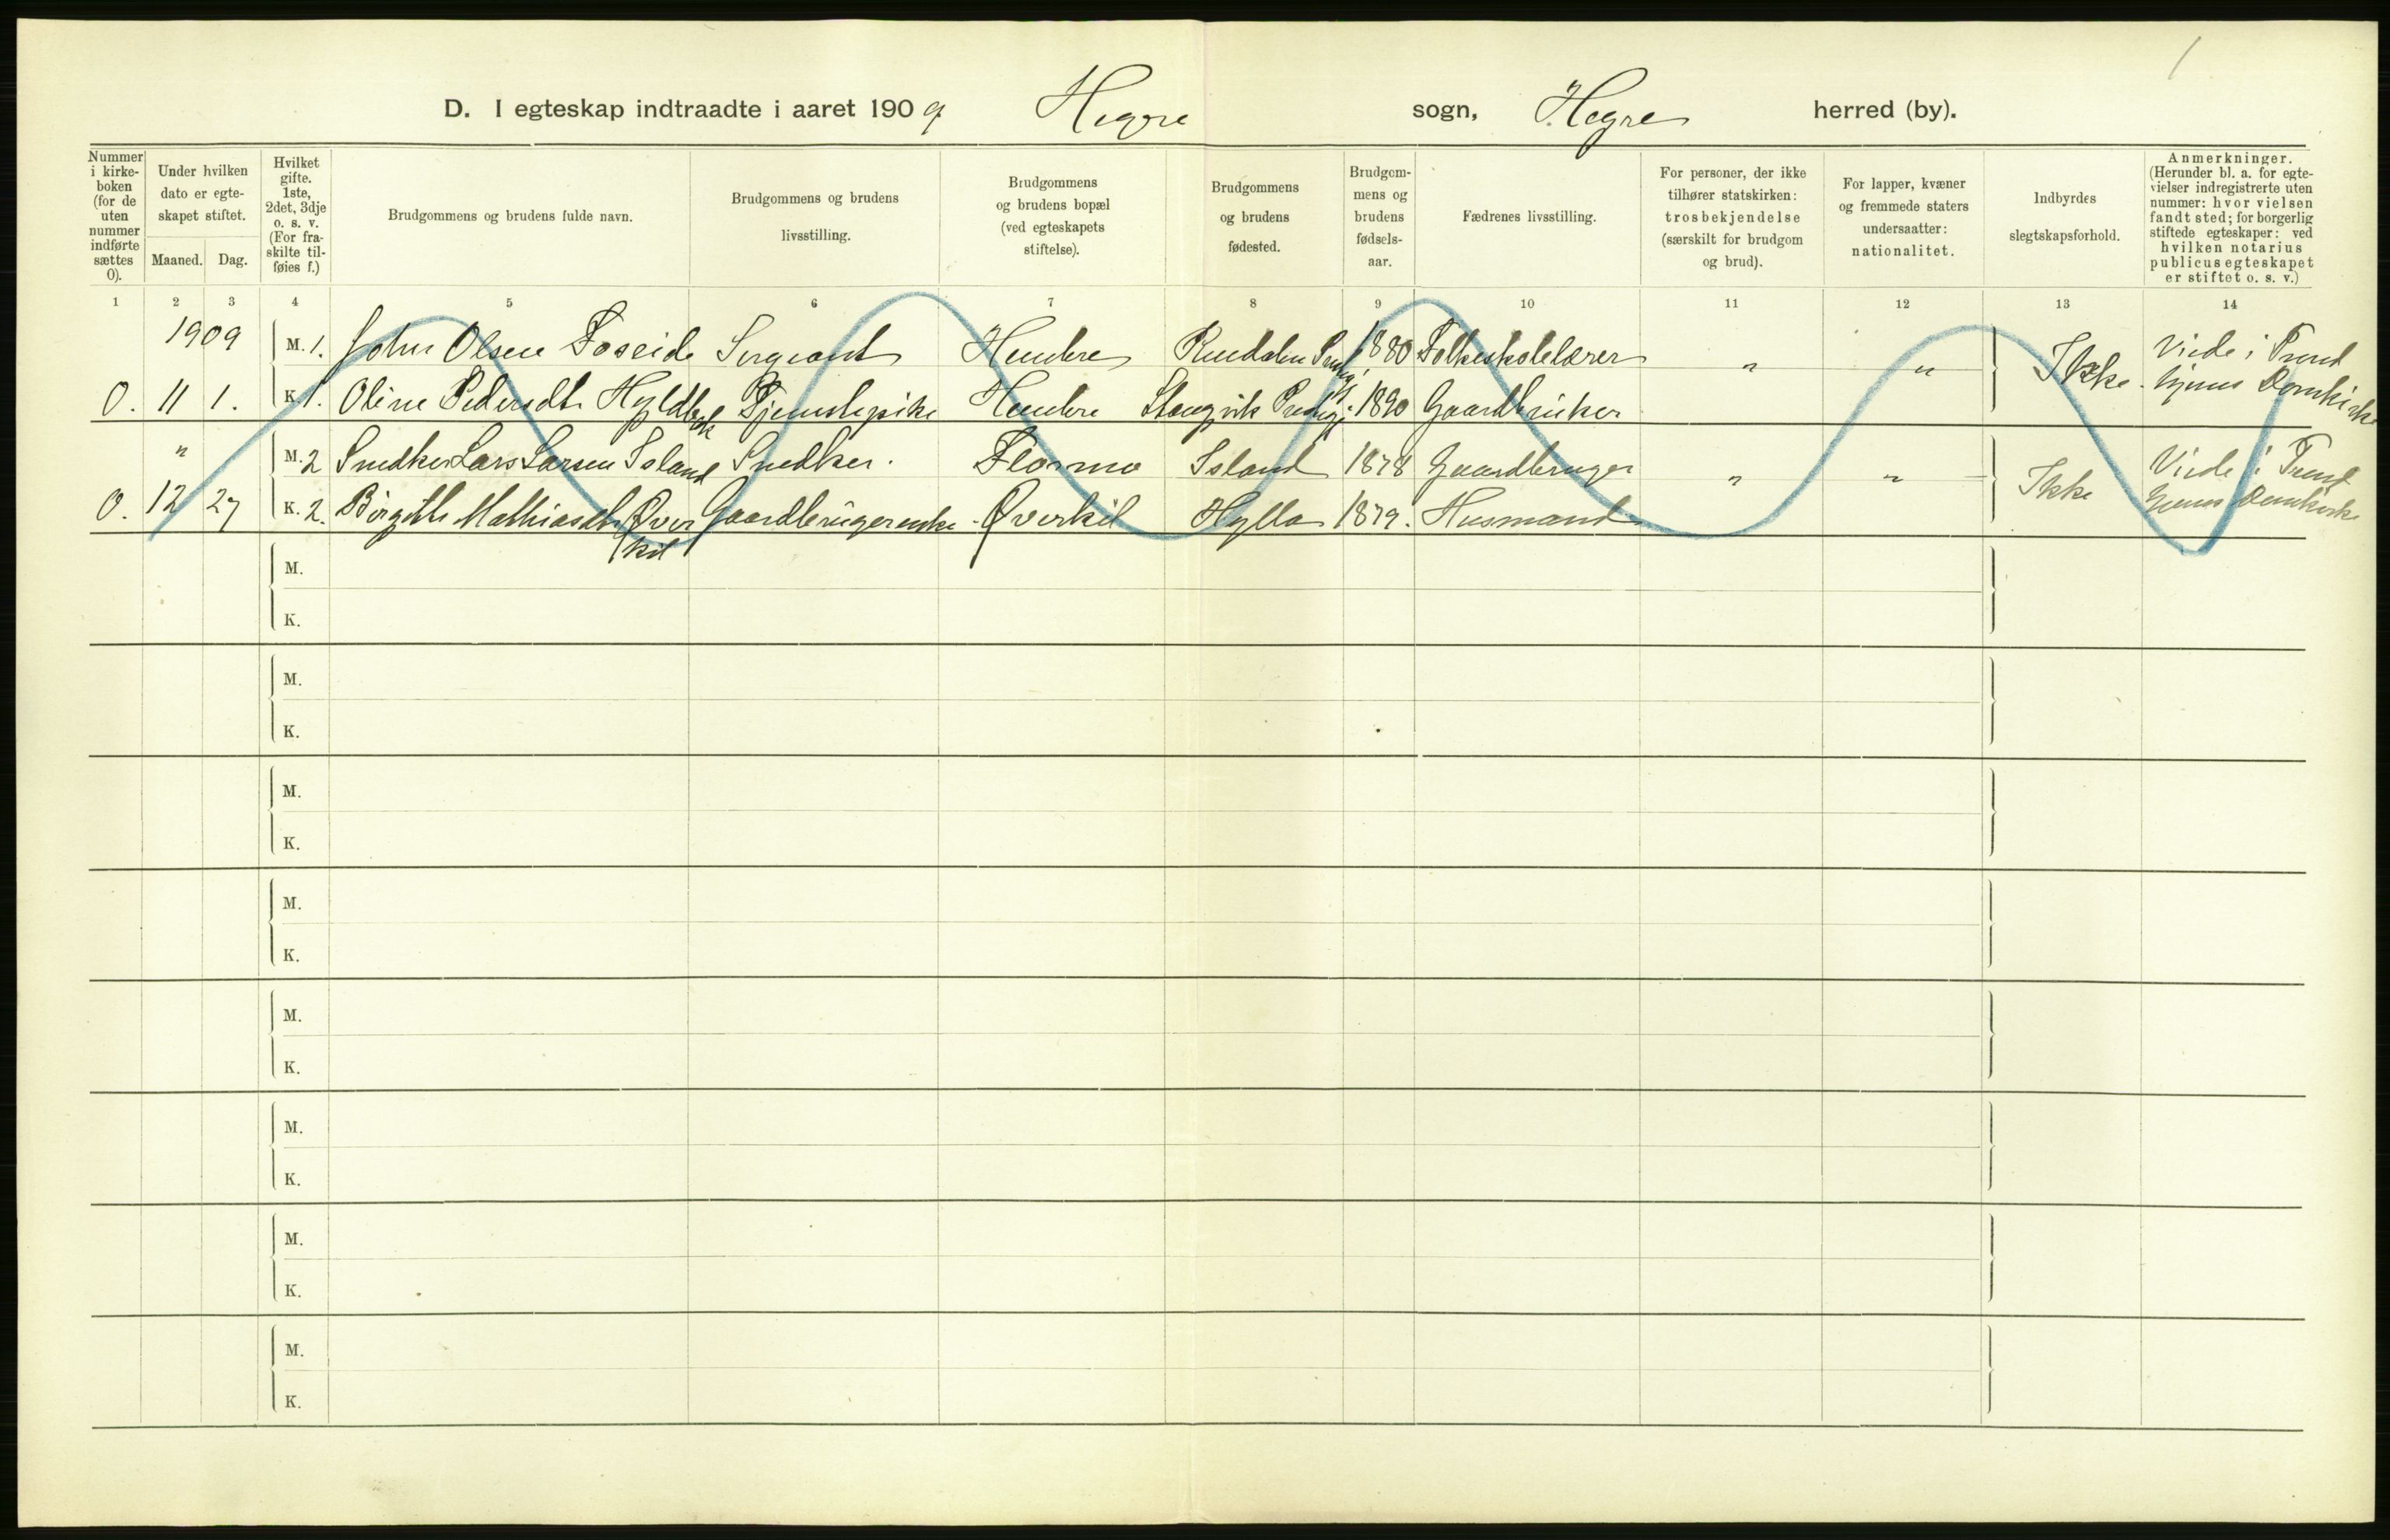 D. I egteskap indtraadte i aaret 1909 Hegre sogn, Hegre herred (by).
Nummer i kirke-boken (for de uten nummer indførte sættes 0).
Under hvilken dato er egte-skapet stiftet.
Maaned. Dag.
Hvilket gifte. 1ste, 2det, 3dje o. s. v. (For fra-skilte til-føies f.)
Brudgommens og brudens fulde navn.
Brudgommens og brudens livsstilling.
Brudgommens og brudens bopæl (ved egteskapets stiftelse).
Brudgommens og brudens fødested.
Brudgom-mens og brudens fødsels-aar.
Fædrenes livsstilling.
For personer, der ikke tilhører statskirken: trosbekjendelse (særskilt for brudgom og brud).
For lapper, kvæner og fremmede staters undersaatter: nationalitet.
Indbyrdes slegtskapsforhold.
Anmerkninger. (Herunder bl. a. for egte-vielser indregistrerte uten nummer: hvor vielsen fandt sted; for borgerlig stiftede egteskaper: ved hvilken notarius publicus egteskapet er stiftet o. s. v.)
1 2 3 4 5 6 7 8 9 10 11 12 13 14
1909 M. 1. John Olsen Foseide Sergeant Hembre 1880 Folkeskolelærer " " Ikke. Viede i Trond
hjems Domkirke
0. 11 1. K. 1. Oline Pedersdtr Hyldbak Tjenestepike Hembre Stangvik 1890 Gaardbruker
" M. 2 Snedker Lars Larsen Island Snedker. Flormo Island 1878 Gaardbruger " " Ikke Viede i Trond
hjems Domkirke
0. 12 27 K. 2. Birgitte Mathiasdtr Øver Gaardbrugerenke Øverkil Hylla 1879. Husmand
kil
M.
K.
M.
K.
M.
K.
M.
K.
M.
K.
M.
K.
M.
K.
M.
K.